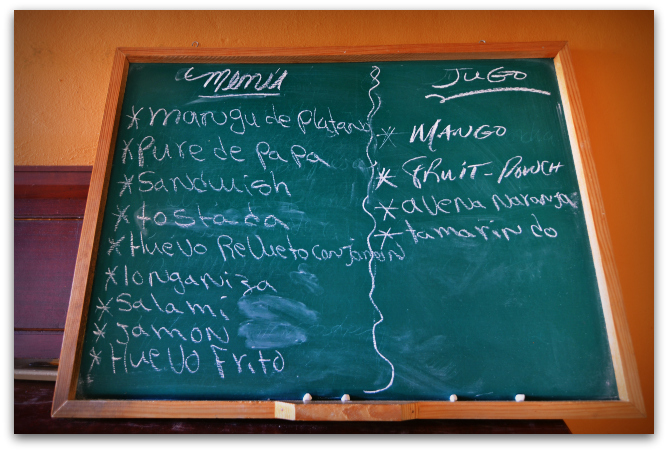 Menú
* Mangu de Platano
* Pure de papa
* Sandwish
* tostada
* Huevo Rellueto con Jamon
* longaniza
* Salami
* Jamon
* Huevo Frito
Jugo
* Mango
* Fruit-Punch
* avena Naranja
* tamarindo